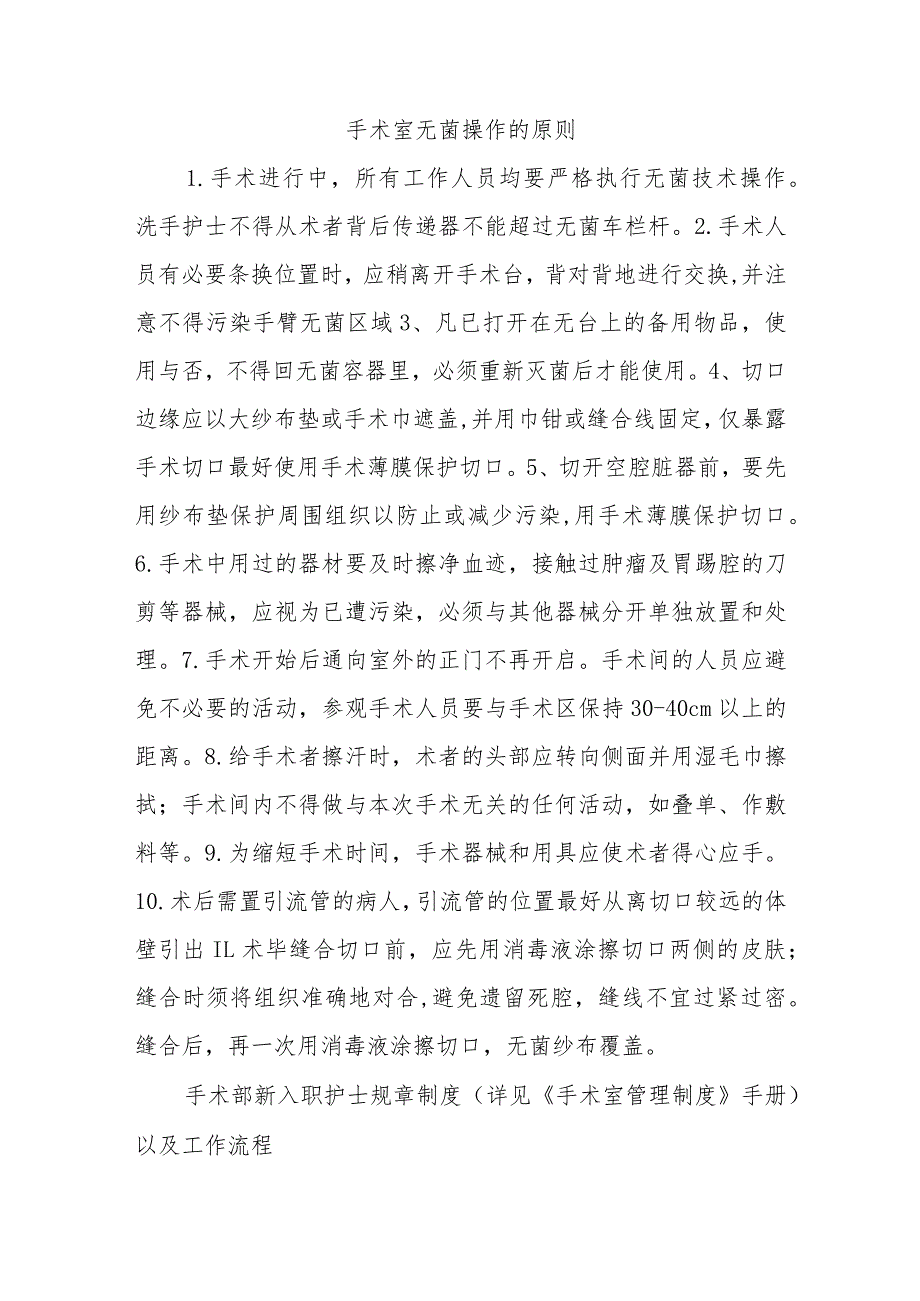 手术室无菌操作的原则
1.手术进行中，所有工作人员均要严格执行无菌技术操作。
洗手护士不得从术者背后传递器不能超过无菌车栏杆。2.手术人
员有必要条换位置时，应稍离开手术台，背对背地进行交换,并注
意不得污染手臂无菌区域3、凡已打开在无台上的备用物品，使
用与否，不得回无菌容器里，必须重新灭菌后才能使用。4、切口
边缘应以大纱布垫或手术巾遮盖,并用巾钳或缝合线固定，仅暴露
手术切口最好使用手术薄膜保护切口。5、切开空腔脏器前，要先
用纱布垫保护周围组织以防止或减少污染,用手术薄膜保护切口。
6.手术中用过的器材要及时擦净血迹，接触过肿瘤及胃踢腔的刀
剪等器械，应视为已遭污染，必须与其他器械分开单独放置和处
理。7.手术开始后通向室外的正门不再开启。手术间的人员应避
免不必要的活动，参观手术人员要与手术区保持30-40cm以上的
距离。8.给手术者擦汗时，术者的头部应转向侧面并用湿毛巾擦
拭；手术间内不得做与本次手术无关的任何活动，如叠单、作敷
料等。9.为缩短手术时间，手术器械和用具应使术者得心应手。
10.术后需置引流管的病人,引流管的位置最好从离切口较远的体
壁引出IL术毕缝合切口前，应先用消毒液涂擦切口两侧的皮肤；
缝合时须将组织准确地对合,避免遗留死腔，缝线不宜过紧过密。
缝合后，再一次用消毒液涂擦切口，无菌纱布覆盖。
手术部新入职护士规章制度（详见《手术室管理制度》手册）
以及工作流程